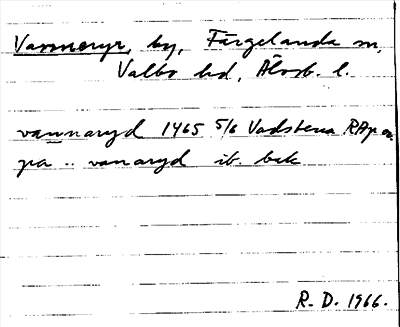 Vammeryr, by, Färgelanda sn,
Valbo hd, Älvsb. l.
vamnaryd 1465 5/6 Vadstena RAp or.
pa .. vanaryd ib. bak
R. D. 1966.